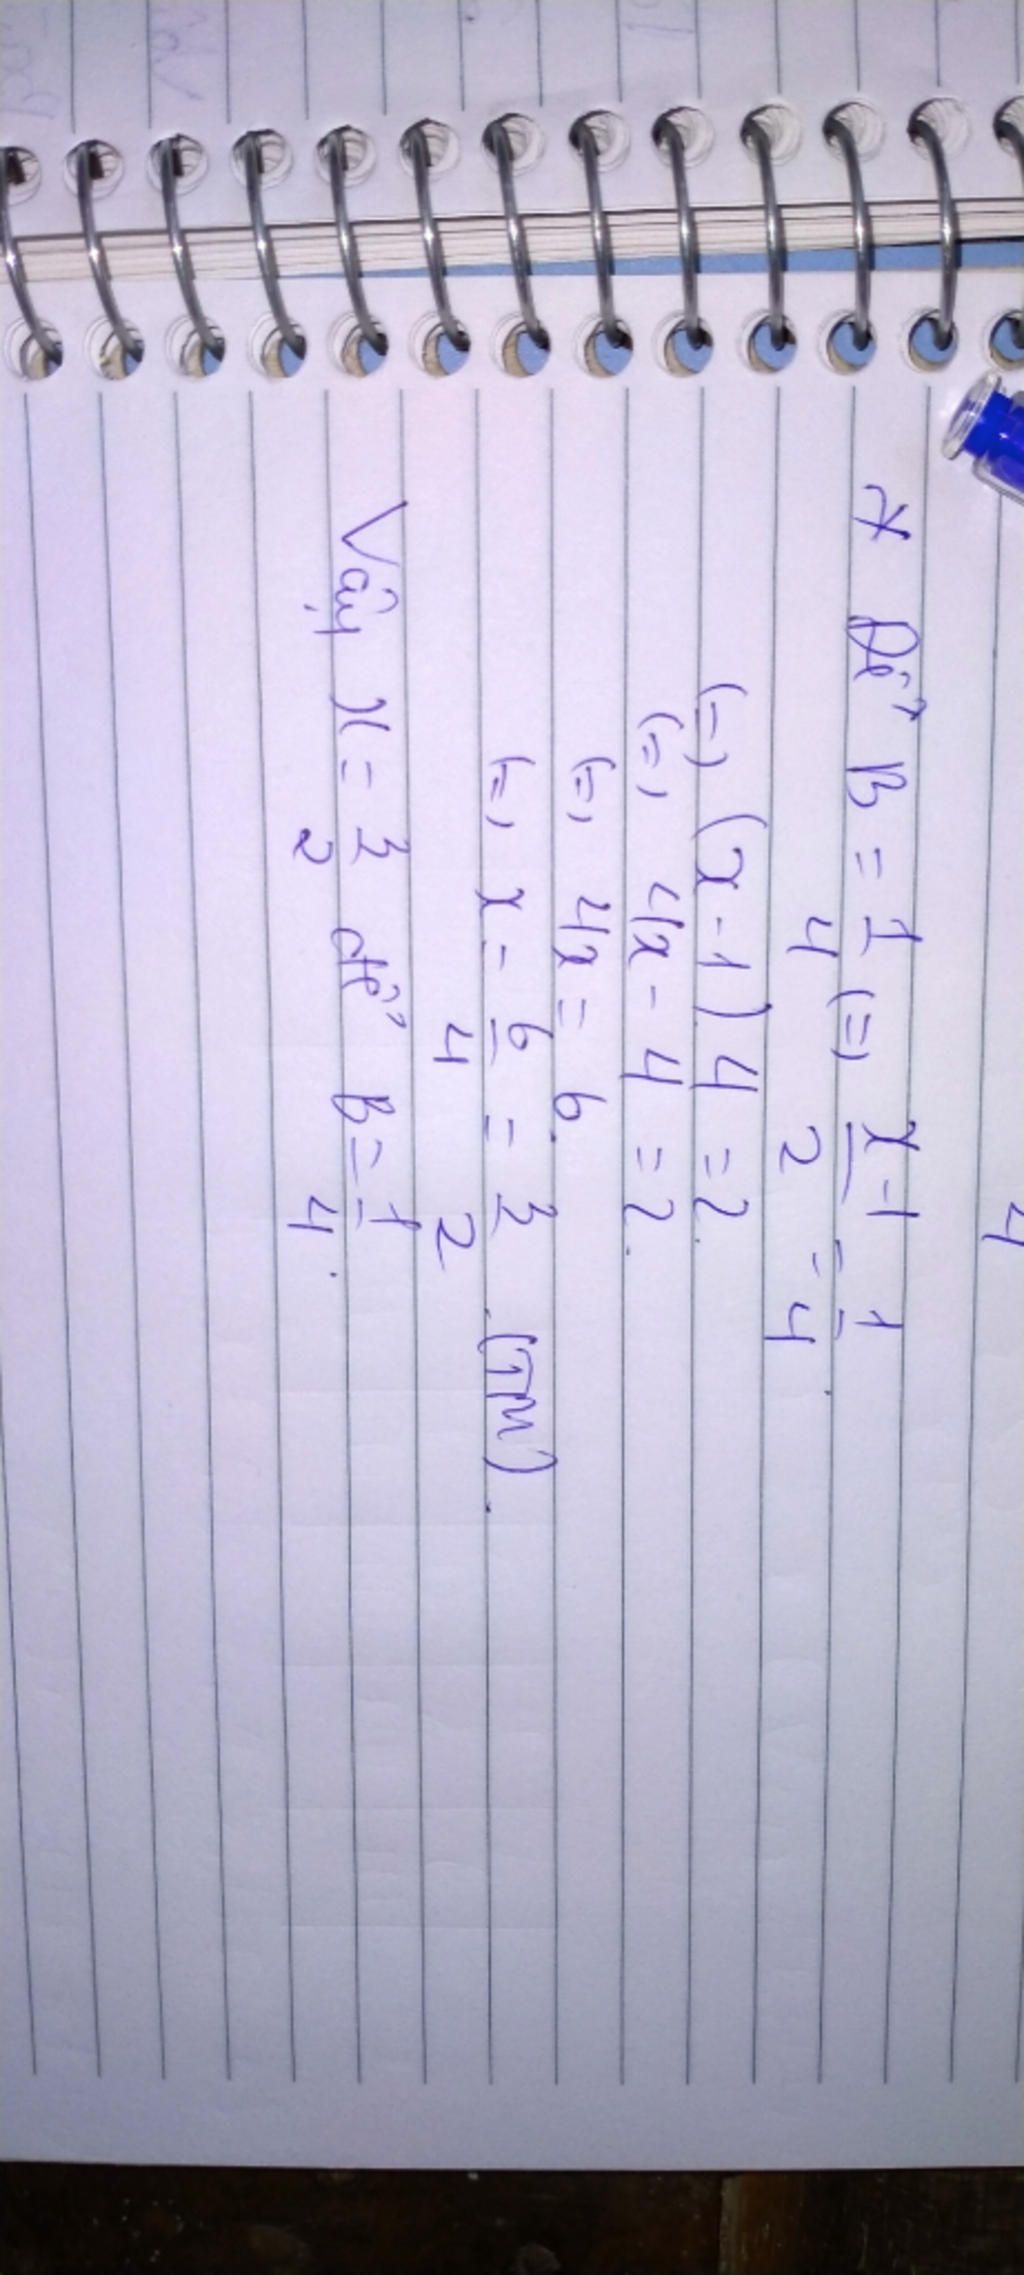 * Để B = 1/4 (=) x-1/2 = 1/4.
(=) (x-1) 4 = 2.
(=) 4x - 4 = 2.
(=) 4x = 6.
(=) x = 6/4 = 3/2 (TM).
Vậy x = 3/2 để B = 1/4.